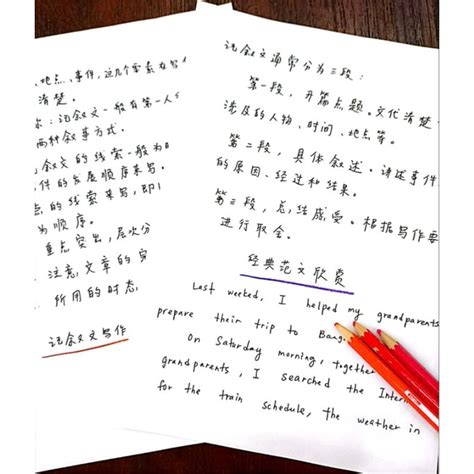 、地点、事件，这几个要素在写
清楚。
记叙文一般有第一人
两种叙事方式。
叙文的线索一般为
件的发展顺序来写，
点的线索来写，即
为顺序。
重点突出，层次分
注意文章的
所用的时态
记叙文写作
记叙文通常分为三段：
第一段，开篇点题。交代清楚
涉及的人物、时间、地点等。
第二段，具体叙述。讲述事件
的原因、经过和结果。
第三段，总结感受。根据写作要
进行取舍。
经典范文欣赏
Last weeked, I helped my grandparents
prepare their trip to
On Saturday morning, together
grandparents, I searched the Inter
for the train schedule, the weather in